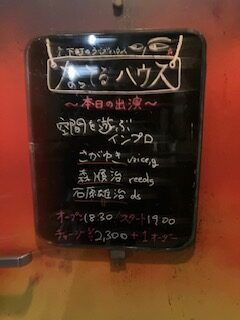 下町のライブハウス
なってるハウス
～本日の出演～
空間を遊ぶ
インプロ
さがゆき voice,g
森順治 reeds
石原雄治 ds
オープン18:30/スタート19:00
チャージ¥2,300+1オーダー